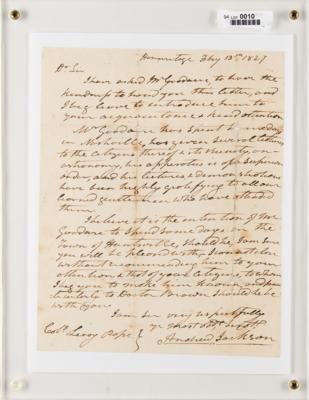 SA LOT 0010
Hermitage Feby 13th 1827
Dr Sir
I have asked Mr Goodacre, to have the
to hand you this letter, and
I beg leave to introduce him to
your acquaintance & kind attention
Mr Goodacre has spent
in Nashville, has given several lectures
to the citizens thereof & its vicinity, on
astronomy, his apparatus is of a superior
order, and his lectures & demonstrations
have been highly gratifying to all our
learned gentlemen who have attended
them.
I believe it is the intention of Mr
Goodacre to spend some days in the
Town of Huntsville, should he, I am sure
you will be pleased with him, I cannot close
without recommending him to your
attention & that of your citizens, to whom
I beg you to make him known, and par-
ticularly to Doctor Brown should he be
with you
I am sir very respectfully
yr obdt servt
Andrew Jackson
Colo. Leroy Pope